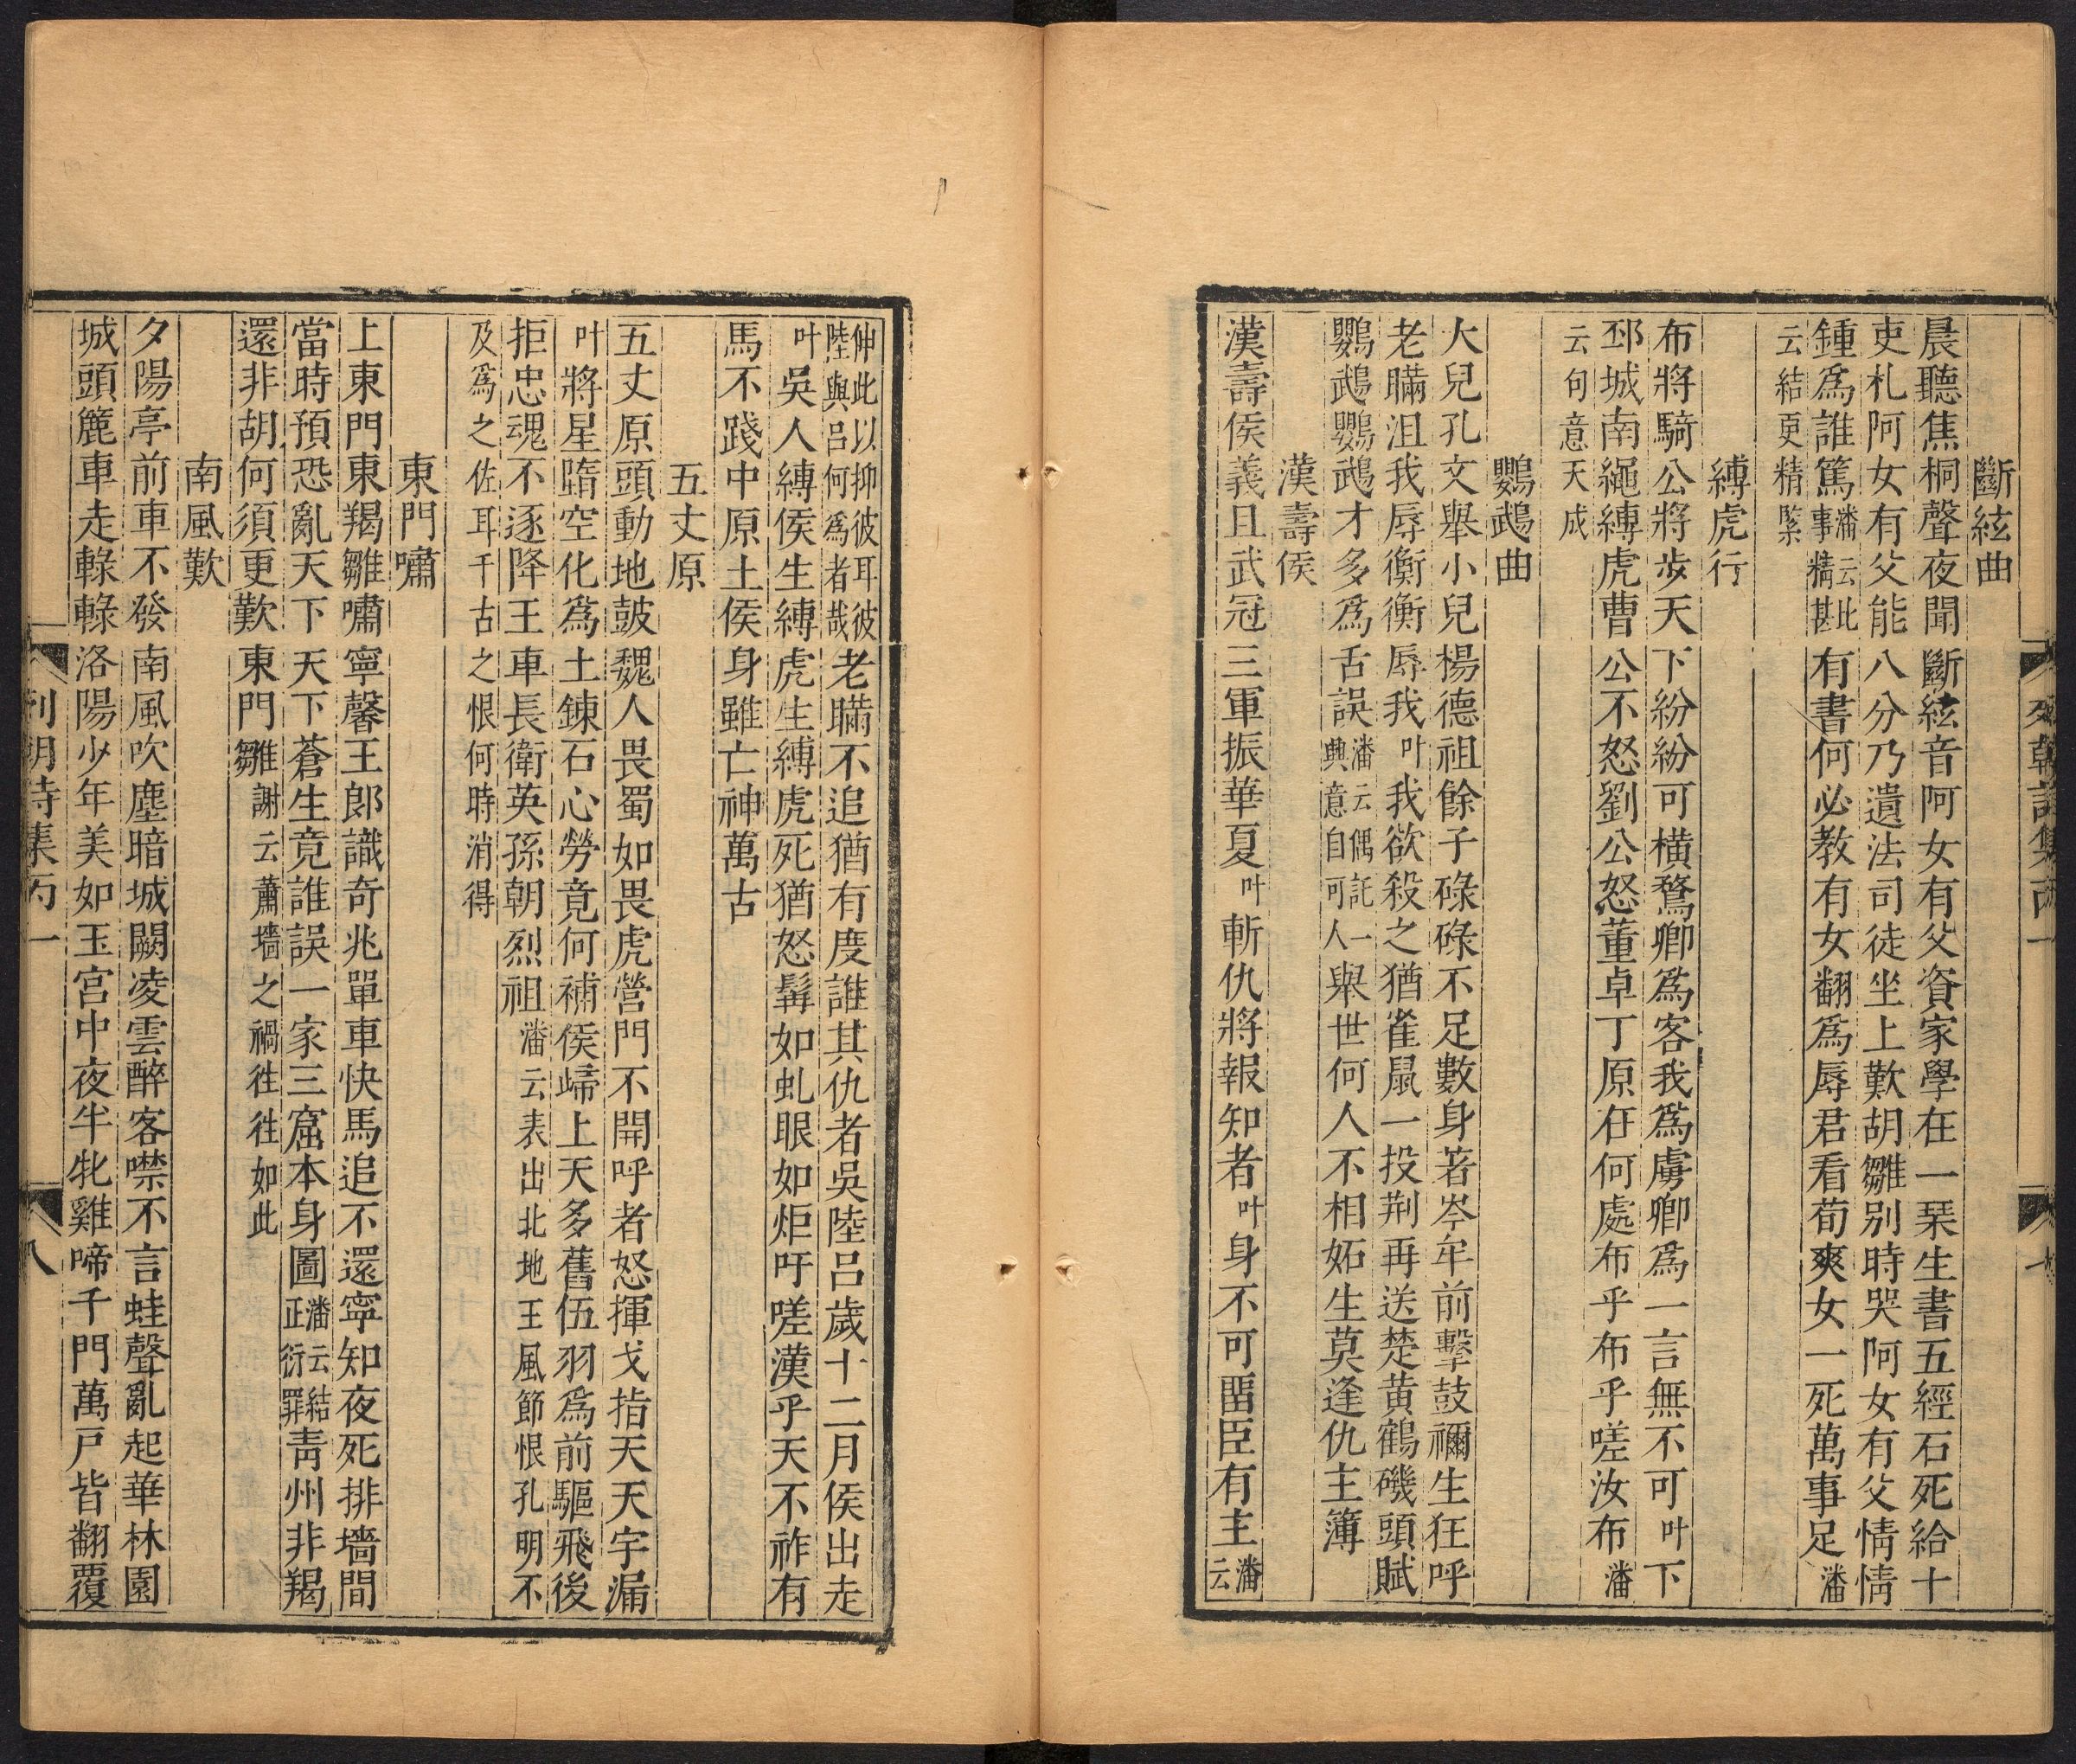 斷絃曲
晨聽焦桐聲夜聞斷絃音阿女有父資家學在一琹生書五經石死給十
吏札阿女有父能八分乃遺法司徒坐上歎胡雛别時哭阿女有父情情
鍾爲誰篤潘云此事精甚有書何必教有女翻爲辱君看荀爽女一死萬事足潘
云結更精緊
縛虎行
布將騎公將步天下紛紛可橫鶩卿爲客我爲虜卿爲一言無不可叶下
邳城南繩縛虎曹公不怒劉公怒董卓丁原在何處布乎布乎嗟汝布潘
云句意天成
鸚鵡曲
大兒孔文舉小兒楊德祖餘子碌碌不足數身著岑牟前擊鼓禰生狂呼
老瞞沮我辱衡衡辱我叶我欲殺之猶雀鼠一投荆再送楚黄鶴磯頭賦
鸚鵡鸚鵡才多爲舌誤潘云偶託一典意自可人舉世何人不相妬生莫逢仇主簿
漢壽侯
漢壽侯義且武冠三軍振華夏叶斬仇將報知者叶身不可畱臣有主潘云
伸此以抑彼耳彼陸與呂何爲者哉老瞞不追猶有度誰其仇者吳陸呂歲十二月侯出走
叶吳人縛侯生縛虎生縛虎死猶怒髯如虬眼如炬吁嗟漢乎天不祚有
馬不踐中原土侯身雖亡神萬古
五丈原
五丈原頭動地皷魏人畏蜀如畏虎營門不開呼者怒揮戈指天天宇漏
叶將星隨空化爲土鍊石心勞竟何補侯歸上天多舊伍羽爲前驅飛後
拒忠魂不逐降王車長衛英孫朝烈祖潘云表出北地王風節恨孔明不
及爲之佐耳千古之恨何時消得
東門嘯
上東門東羯雛嘯寧馨王郞識奇兆單車快馬追不還寧知夜死排墻間
當時預恐亂天下天下蒼生竟誰誤一家三窟本身圖潘云結正衍罪靑州非羯
還非胡何須更歎東門雛謝云蕭墻之禍徃徃如此
南風歎
夕陽亭前車不發南風吹塵暗城闕凌雲醉客噤不言蛙聲亂起華林園
城頭簏車走轅轅洛陽少年美如玉宮中夜半牝雞啼千門萬戸皆翻覆
列朝詩集丙一
八